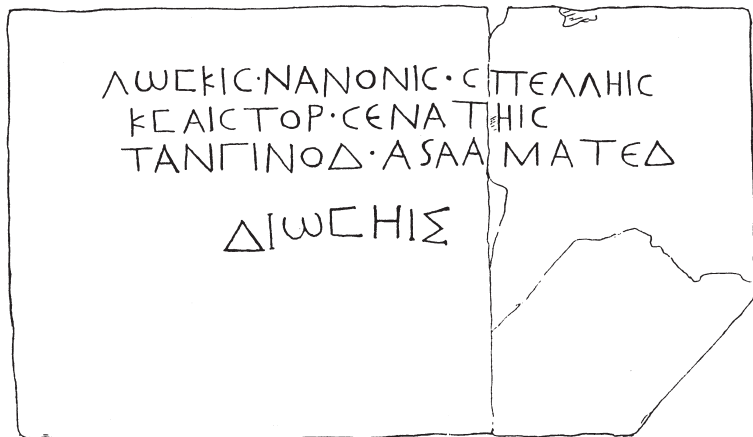 ΛΩϜΚΙϹ·ΝΑΝΟΝΙϹ·ϹΠΕΛΛΗΙϹ
ΚϜΑΙϹΤΟΡ·ϹΕΝΑΤΗΙϹ
ΤΑΝΓΙΝΟΔ·ΑSΑΑΜΑΤΕΔ
ΔΙΩϜΗΙΣ